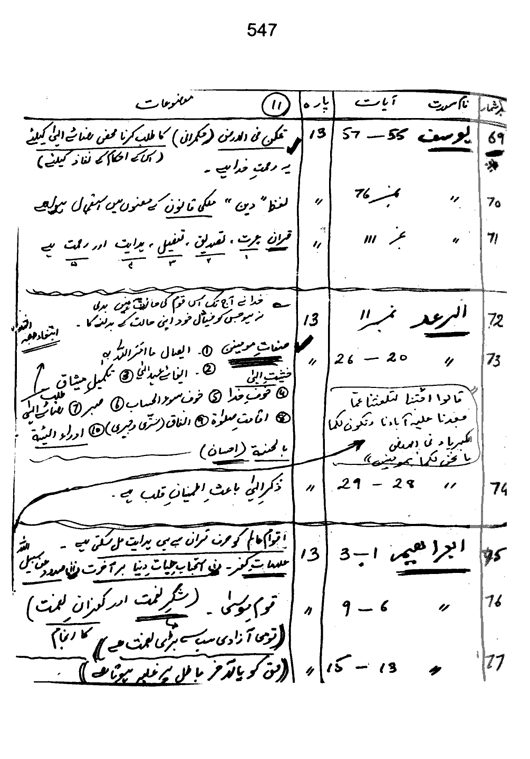 547
نمبر شمار نام سورت آیات پارہ ١١ موضوعات
69 یوسف 55 – 57 13 تمکن فی الارض (حکمرانی) کا طلب کرنا محض رضائے الٰہی کیلئے
(اسکے احکام کے نفاذ کیلئے)
یہ رحمتِ خدا ہے ۔
70 〃 نمبر 76 〃 لفظ "دین" ملکی قانون کے معنوں میں استعمال ہوا ہے
71 〃 نمبر 111 〃 قرآن عبرت، تصدیق، تفصیل، ہدایت اور رحمت ہے
١ ٢ ٣ ٤ ٥
72 الرعد نمبر 11 13 خدا نے آج تک اس قوم کی حالت نہیں بدلی
نہ ہو جس کو خیال خود اپنی حالت کے بدلنے کا ۔
73 〃 20 – 26 〃 صفاتِ مومنین ① ایصال ما امر اللہ بہ
خشیتِ الٰہی ② ایفائے عہد الٰہی ③ تکمیل میثاق
④ خوفِ خدا ⑤ خوف سوء الحساب ⑥ صبر ⑦ طلب رضائے الٰہی
⑧ اقامت صلوٰۃ ⑨ انفاق (سرّی و جہری) ⑩ ادراء السیئۃ
بالحسنۃ (احسان)
قالوا اجئتنا لتلفتنا عمّا
وجدنا علیہ آباءنا وتکون لکما
الکبریاء فی الارض
وما نحن لکما بمومنین"
74 〃 28 – 29 〃 ذکرِ الٰہی باعثِ اطمینانِ قلب ہے ۔
75 ابراھیم 1 – 3 13 اقوامِ عالم کو صرف قرآن سے ہی ہدایت مل سکتی ہے ۔
علاماتِ کفر ۔ استحباب حیات دنیا بر آخرت صدود عن سبیل اللہ
76 〃 6 – 9 〃 قومِ موسیٰ ۔ (شکرِ نعمت اور کفران نعمت)
کا انجام
((قومی آزادی سب سے بڑی نعمت ہے))
77 〃 13 – 15 〃 ((حق کو بالآخر باطل پر غلبہ ہوتا ہے))